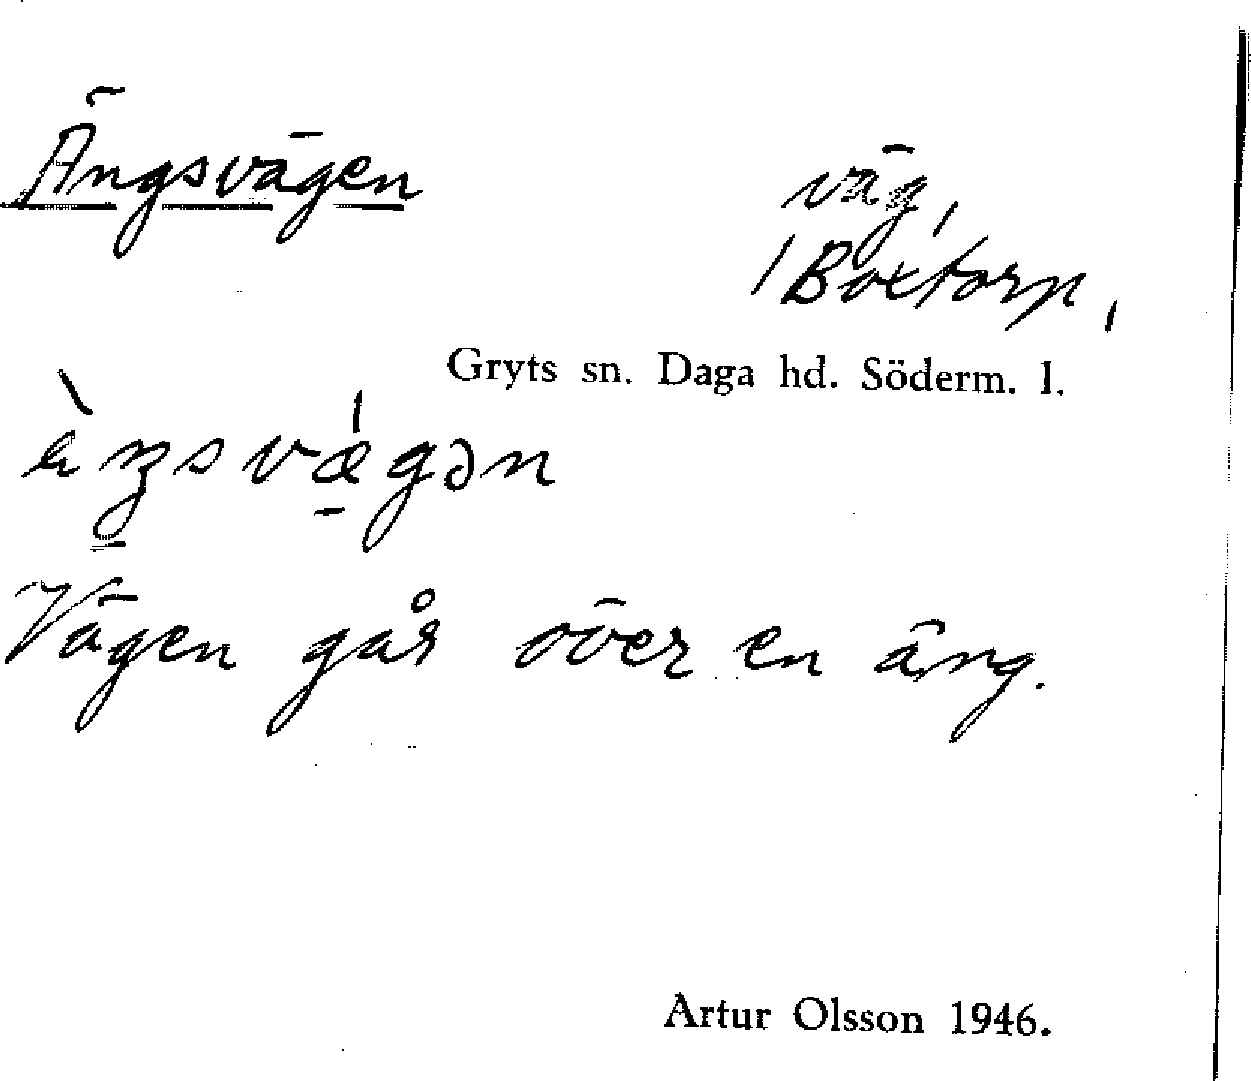 Ängsvägen
väg,
/Boxtorp,
Gryts sn. Daga hd. Söderm. l.
Vägen går över en äng.
Artur Olsson 1946.